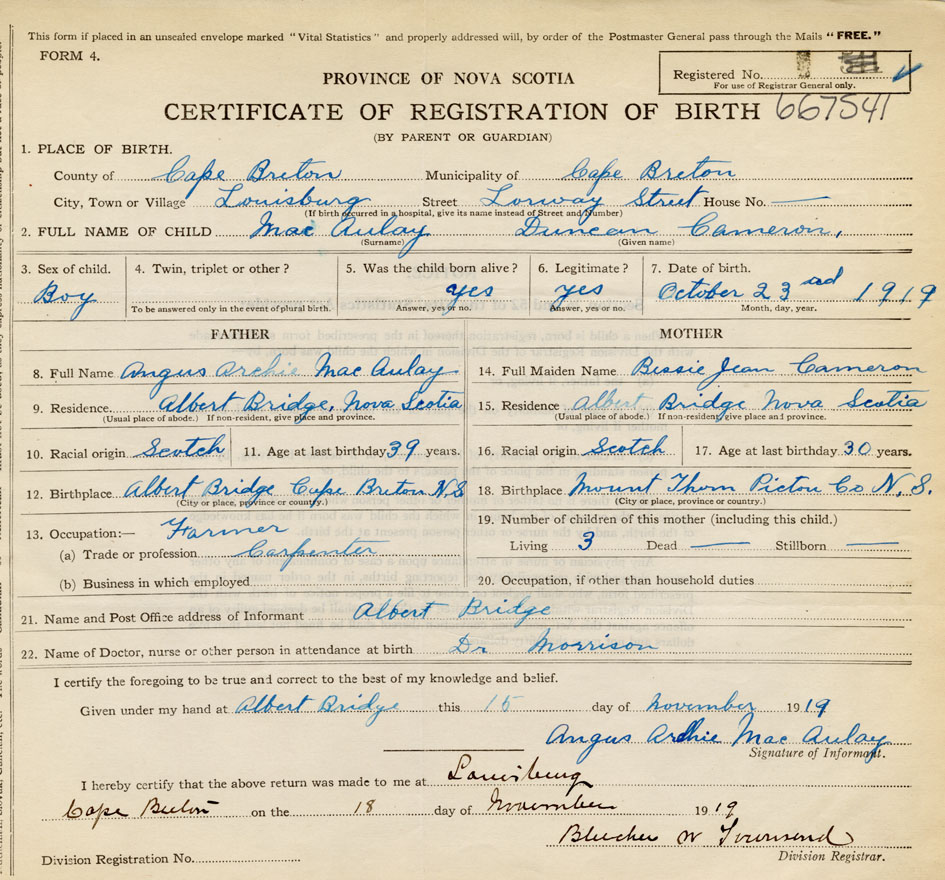 This form if placed in an unsealed envelope marked "Vital Statistics" and properly addressed will, by order of the Postmaster General pass through the Mails "FREE."
FORM 4.
PROVINCE OF NOVA SCOTIA
Registered No.
For use of Registrar General only.
CERTIFICATE OF REGISTRATION OF BIRTH 667541
(BY PARENT OR GUARDIAN)
1. PLACE OF BIRTH.
County of Cape Breton Municipality of Cape Breton
City, Town or Village Louisburg Street Lorway Street House No. —
(If birth occurred in a hospital, give its name instead of Street and Number)
2. FULL NAME OF CHILD Mac Aulay Duncan Cameron,
(Surname) (Given name)
3. Sex of child. 4. Twin, triplet or other? 5. Was the child born alive? 6. Legitimate? 7. Date of birth.
Boy yes yes October 23rd 1919
To be answered only in the event of plural birth. Answer, yes or no. Answer, yes or no. Month, day, year.
FATHER MOTHER
8. Full Name Angus Archie Mac Aulay 14. Full Maiden Name Bessie Jean Cameron
9. Residence Albert Bridge, Nova Scotia 15. Residence Albert Bridge Nova Scotia
(Usual place of abode.) If non-resident, give place and province. (Usual place of abode.) If non-resident, give place and province.
10. Racial origin Scotch 11. Age at last birthday 39 years. 16. Racial origin Scotch 17. Age at last birthday 30 years.
12. Birthplace Albert Bridge Cape Breton N.S 18. Birthplace Mount Thom Picton Co N.S.
(City or place, province or country.) (City or place, province or country.)
13. Occupation:— Farmer 19. Number of children of this mother (including this child.)
(a) Trade or profession Carpenter Living 3 Dead — Stillborn —
(b) Business in which employed 20. Occupation, if other than household duties
21. Name and Post Office address of Informant Albert Bridge
22. Name of Doctor, nurse or other person in attendance at birth Dr Morrison
I certify the foregoing to be true and correct to the best of my knowledge and belief.
Given under my hand at Albert Bridge this 15 day of November 1919
Angus Archie Mac Aulay
Signature of Informant.
I hereby certify that the above return was made to me at Louisburg
Cape Breton on the 18 day of November 1919
Blucher W Townsend
Division Registration No. Division Registrar.